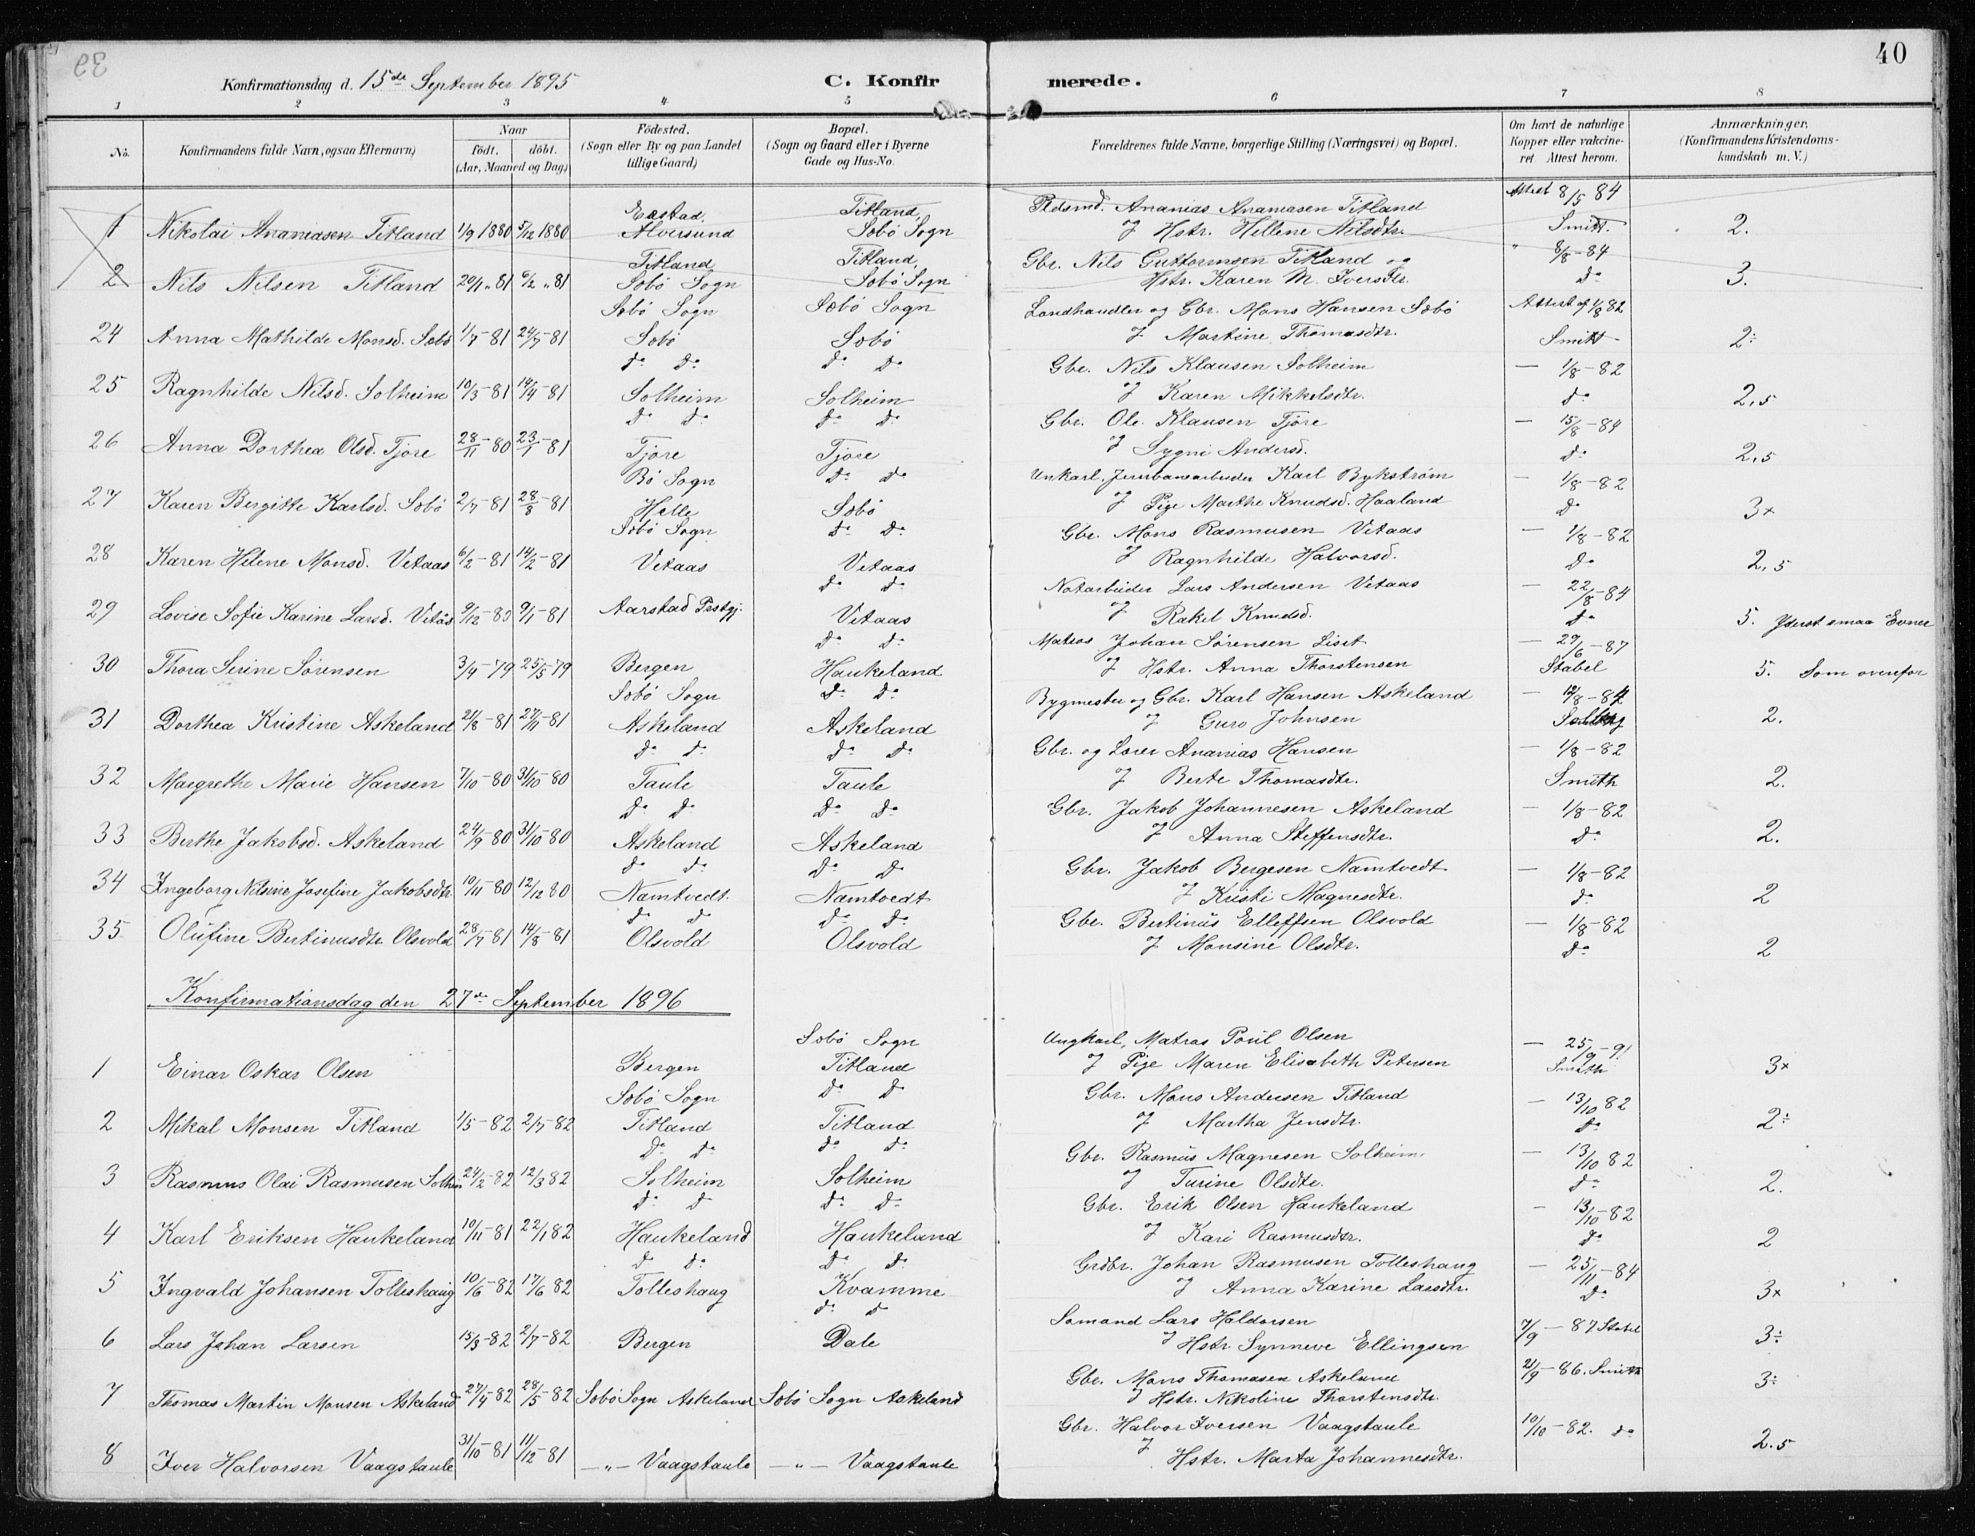 40
Konfirmationsdag d. 15de September 1895 C. Konfirmerede.
1 2 3 4 5 6 7 8
No. Konfirmandens fulde Navn, ogsaa Efternavn. Naar født. døbt. (Aar, Maaned og Dag) Fødested. (Sogn eller By og paa Landet tillige Gaard) Bopæl. (Sogn og Gaard eller i Byerne Gade og Hus-No. Forældrenes fulde Navne, borgerlige Stilling (Næringsvei) og Bopæl. Om havt de naturlige Kopper eller vakcineret Attest herom. Anmærkninger. (Konfirmandens Kristendomskundskab m. V.)
Titland Pldsmd. Ananias Ananiasen Titland Attest 8/5 84
1 Nikolai Ananiasen Titland 1/9 1880 5/12 1880 Alversund Sæbø Sogn & Hstr. Hellene Nilsdtr. Smitt. 2.
Titland Titland Gbr. Nils Guttormsen Titland og " 8/8-84
2 Nils Nilsen Titland 20/1 " 81 6/2 " 81 Sæbø Sogn Sæbø Sogn Hstr. Karen M. Iversdtr. do 3.
Sæbø Sogn Sæbø Sogn Landhandler og Gbr. Mons Hansen Sæbø Attest af 1/8 82
24 Anna Mathilde Monsd. Sæbø 1/7-81 24/7-81 Sæbø Sæbø & Martine Thomasdtr. Smitt 2÷
do do do do Gbr. Nils Klausen Solheim — 1/8-82
25 Ragnhilde Nilsd. Solheim 10/3-81 14/4-81 Solheim Solheim & Karen Mikkelsdtr. do 2,5
do do do do Gbr. Ole Klausen Tjore — 15/8-84
26 Anna Dorthea Olsd. Tjore 28/11-80 23/1-81 Tjore Tjore & Sygni Andersd. do 2,5
Bø Sogn do do Unkarl, Jernbanearbeider Karl Bykstrøm — 1/8-82
27 Karen Bergitte Karlsd. Sæbø 2/7-81 28/8-81 Helle Sæbø & Pige Marthe Knudsd. Haaland do 3x
Sæbø Sogn do do Gbr. Mons Rasmusen Vetaas — 1/8-82
28 Karen Helene Monsd. Vetaas 6/2-81 14/2-81 Vetaas Vetaas & Ragnhilde Halvorsd. do 2,5
do do Notarbeider Lars Andersen Vetaas — 22/8-84
29 Lovise Sofie Karine Larsd. Vetås 9/12-80 9/1-81 Aarstad Prstgj. Vetaas & Rakel Knudsd. do 5. Yderst smaa Evner
do do Matros Johan Sørensen Liset — 29/6-87
30 Thora Serine Sørensen 3/4-79 25/5 79 Bergen Haukeland & Hstr. Anna Thorstensen Stabel 5. Som ovenfor
Sæbø Sogn do do Bygmester og Gbr. Karl Hansen Askeland — 12/8-84
31 Dorthea Kristine Askeland 21/8-81 27/11-81 Askeland Askeland & Guro Johnsen 2.
do do do do Gbr. og Lærer Ananias Hansen — 1/8-82
32 Margrethe Marie Hansen 7/10-80 31/10-80 Taule Taule & Berte Thomasdtr. Smith 2.
do do do do Gbr. Jakob Johannesen Askeland — 1/8-82
33 Berthe Jakobsd. Askeland 24/9-80 31/10-80 Askeland Askeland & Anna Steffensdtr. do 2.
do do do do Gbr. Jakob Bergesen Namtvedt — 1/8-82
34 Ingeborg Nilsine Josefine Jakobsdtr 10/11-80 12/12 80 Namtvedt. Namtvedt & Kristi Magnesdtr. do 2
do do do do Gbr. Bertinus Elleffsen Olsvold — 1/8-82
35 Olufine Bertinusdtr. Olsvold 28/7-81 14/8-81 Olsvold Olsvold & Monsine Olsdtr. do 2
Konfirmationsdag den 27de September 1896
Sæbø Sogn Ungkarl, Matros Poul Olsen — 25/9-91
1 Einar Oskar Olsen Bergen Titland & Pige Maren Elisabeth Petersen Smith 3x
Sæbø Sogn do do Gbr. Mons Andersen Titland — 13/10 82
2 Mikal Monsen Titland 1/5-82 2/7-82 Titland Titland & Martha Jensdtr. do 2÷
do do do do Gbr. Rasmus Magnesen Solheim — 13/10 82
3 Rasmus Olai Rasmusen Solheim 24/2-82 12/3 82 Solheim Solheim & Turine Olsdtr. do 2.
do do do do Gbr. Erik Olsen Haukeland — 13/10-82
4 Karl Eriksen Haukeland 10/11-81 22/1 82 Haukeland Haukeland & Kari Rasmusdtr. do 2
do do do do Grdbr. Johan Rasmusen Tolleshaug — 25/11-84
5 Ingvald Johansen Tolleshaug 10/6-82 17/6 82 Tolleshaug Kvamme & Anna Karine Larsdtr. do 3x
do do Sømand Lars Haldorsen 7/9 — 87 Stabel
6 Lars Johan Larsen 15/3-82 2/7-82 Bergen Dale & Hstr. Synneve Ellingsen 3÷
Gbr. Mons Thomasen Askeland 21/9-86. Smith
7 Thomas Martin Monsen Askeland 27/4-82 28/5-82 Sæbø Sogn Askeland Sæbø Sogn Askeland & Hstr. Nikoline Thorstensdtr. 3÷
Gbr. Halvor Iversen Vaagstaule 10/10-82. do
8 Iver Halvorsen Vaagstaule 31/10-81 11/12-81 — " — Vaagstaule — " — Vaagstaule & Hstr. Marta Johannesdtr. 2.5